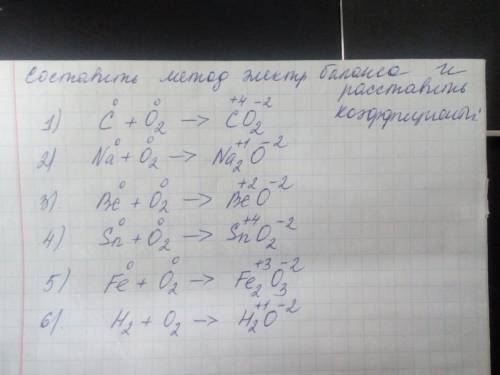 Составить метод электр баланса и
расставить
коэффициенты
1) C⁰ + O₂⁰ → C⁺⁴O₂⁻²
2) Na⁰ + O₂⁰ → Na₂⁺¹O⁻²
3) Be⁰ + O₂⁰ → Be⁺²O⁻²
4) Sn⁰ + O₂⁰ → Sn⁺⁴O₂⁻²
5) Fe⁰ + O₂⁰ → Fe₂⁺³O₃⁻²
6). H₂ + O₂ → H₂⁺¹O⁻²